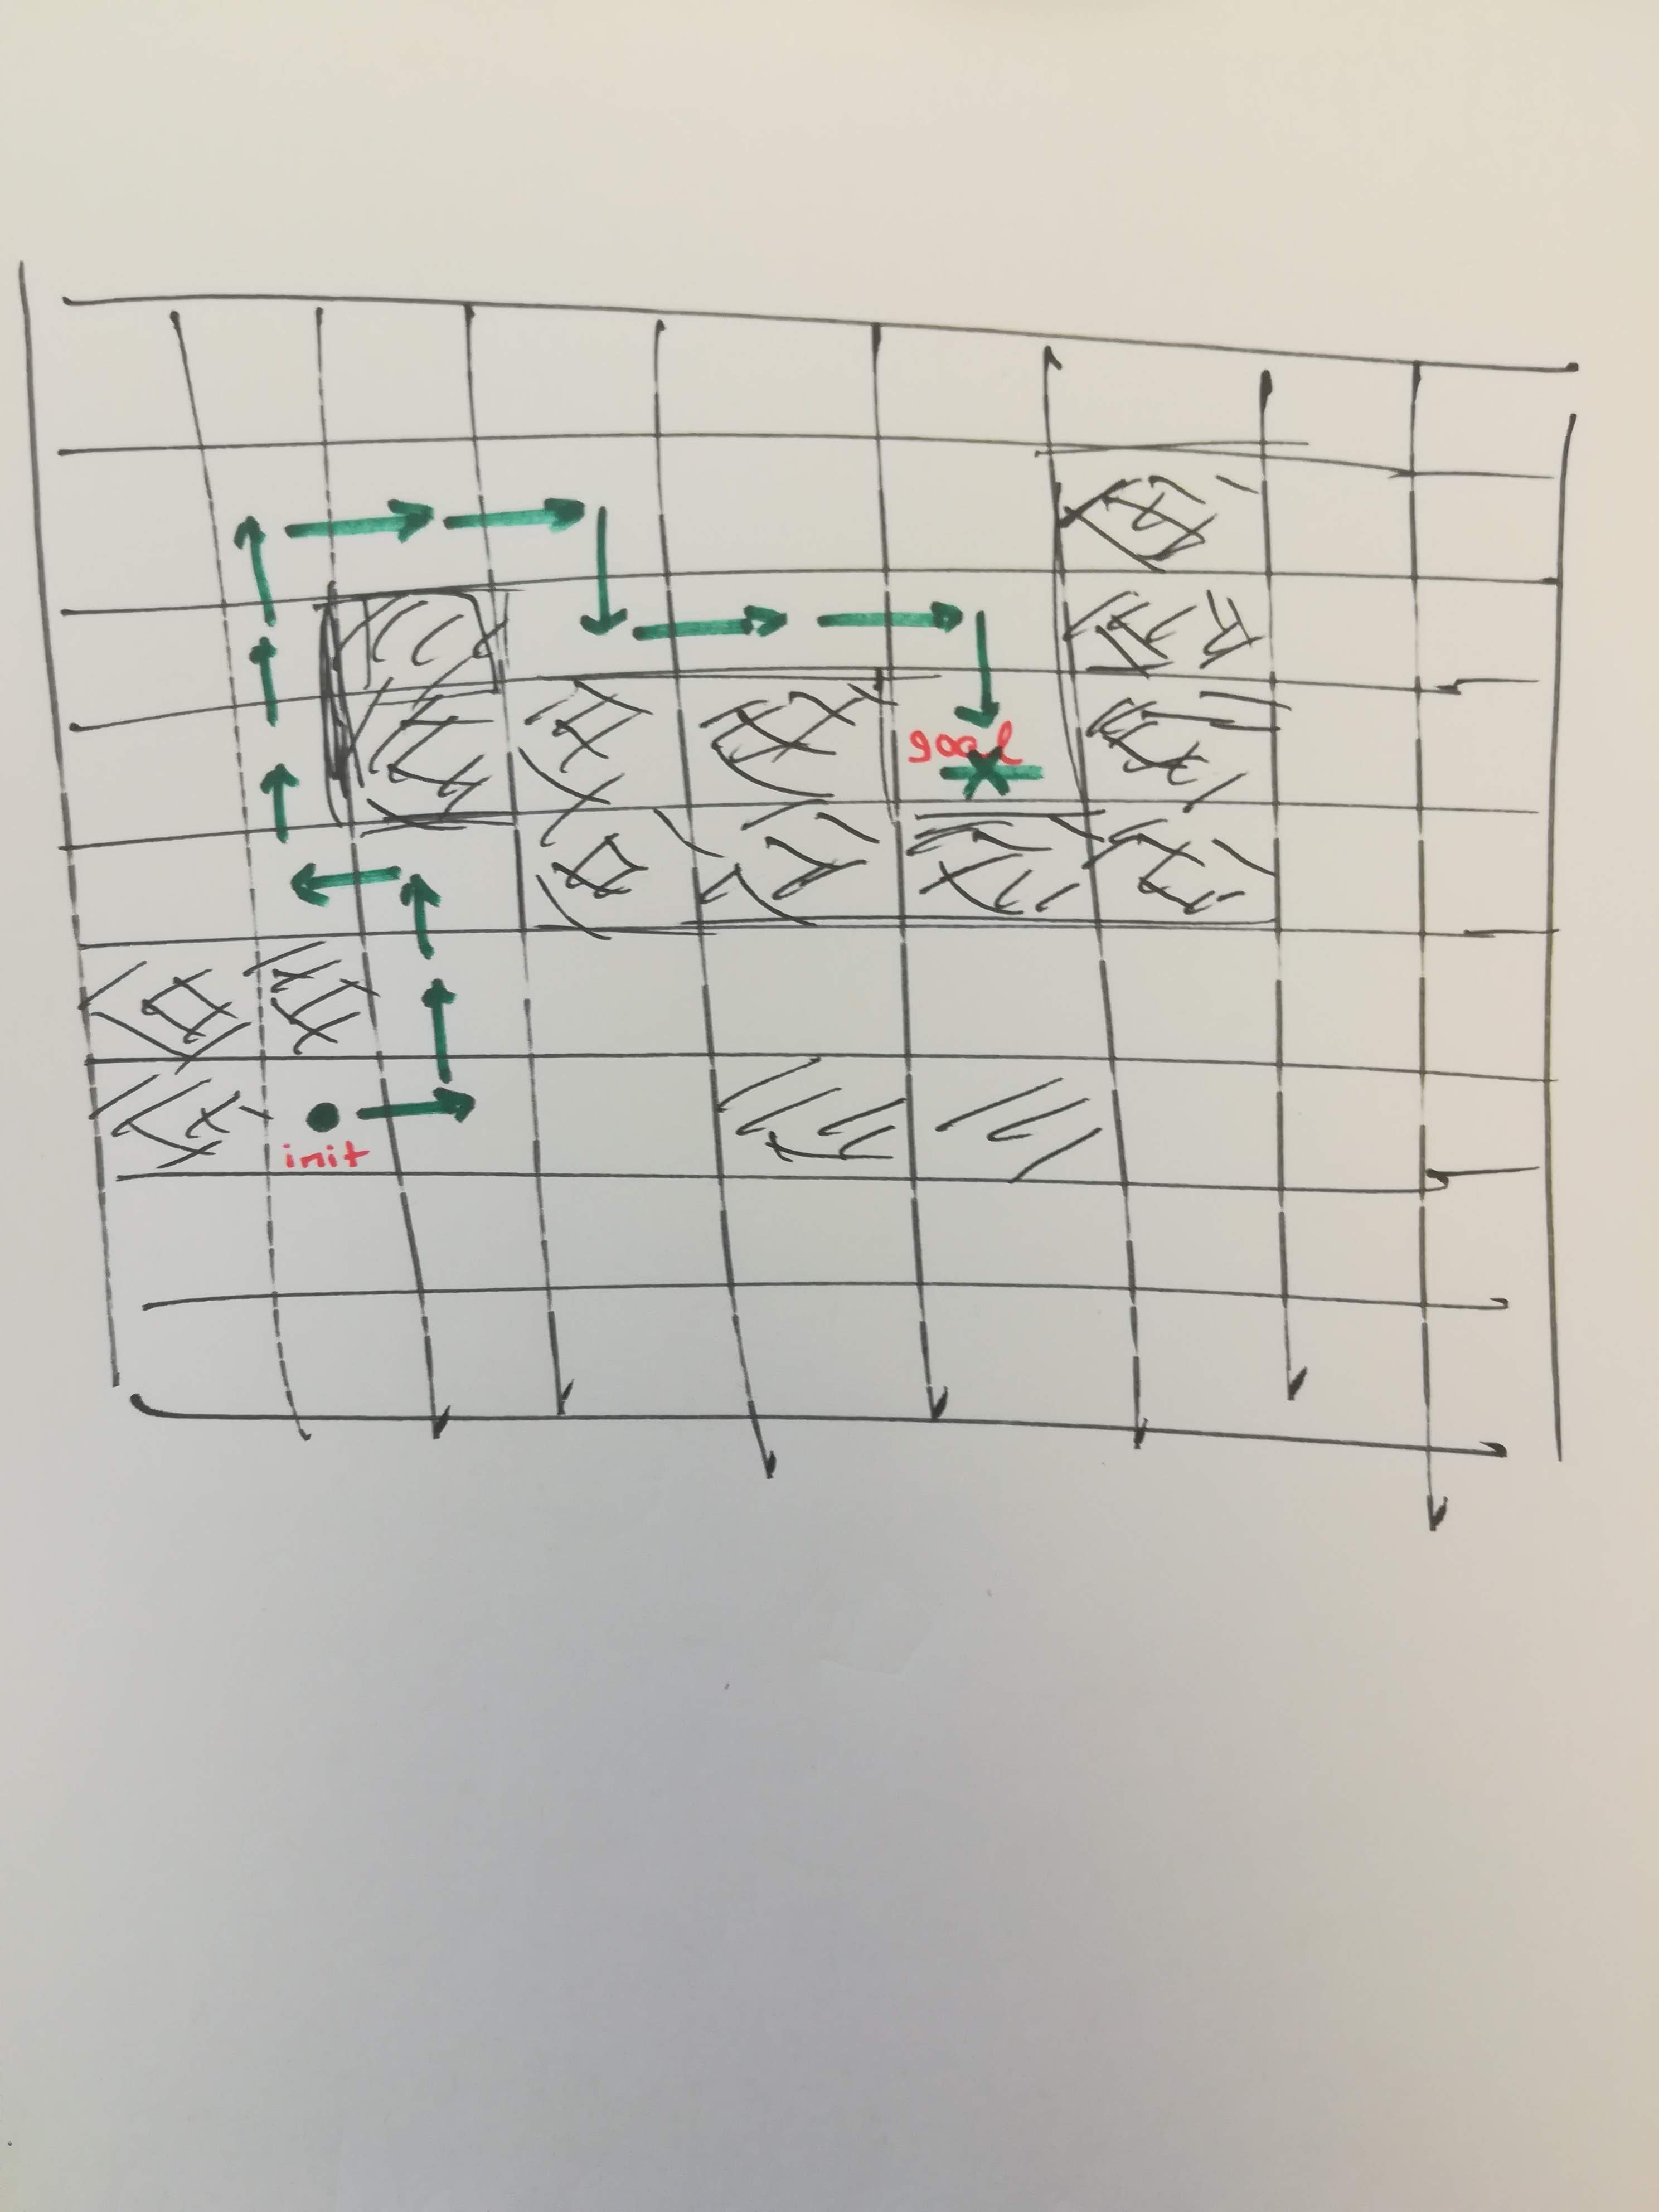 goal
init